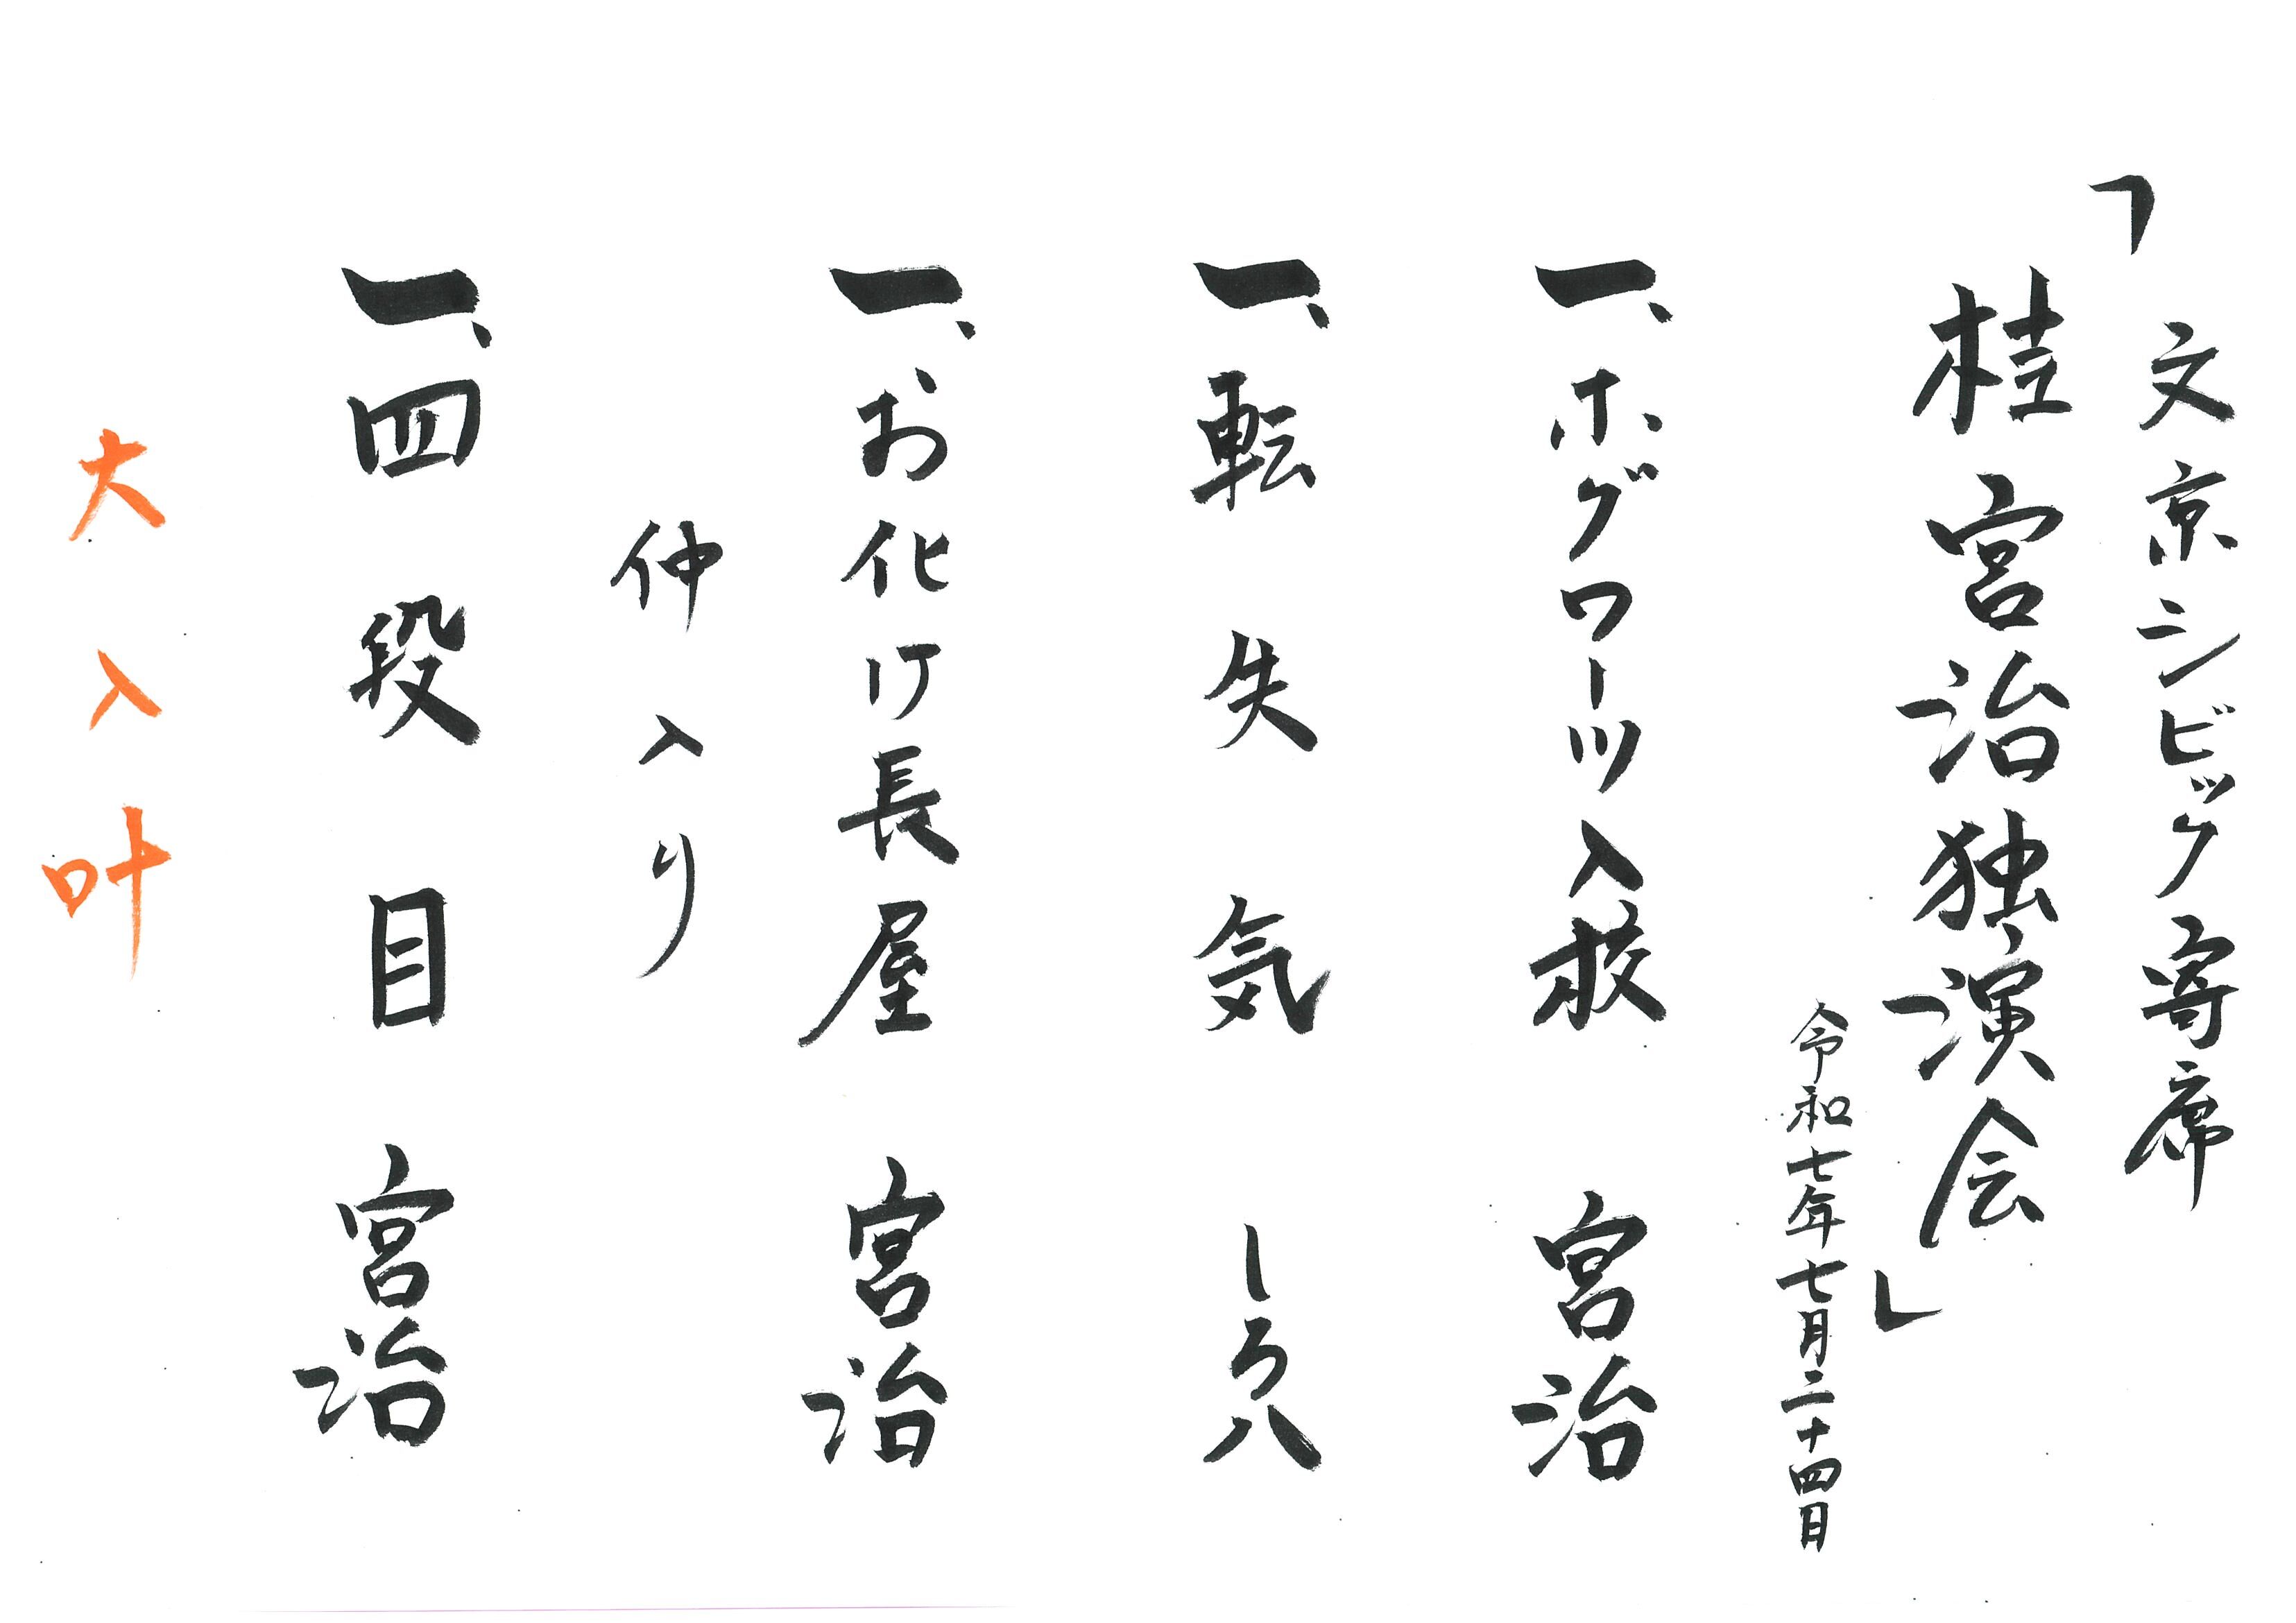 「文京シビック寄席
桂宮治独演会」
令和七年七月二十四日
一、ホグワーツ入校 宮治
一、転失気 しろ八
一、お化け長屋 宮治
仲入り
一、四段目 宮治
大入叶